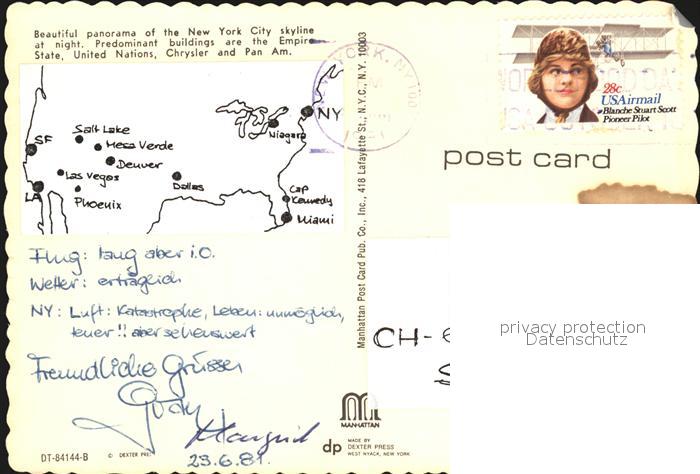 Beautiful panorama of the New York City skyline
at night. Predominant buildings are the Empire
State, United Nations, Chrysler and Pan Am.
NY
SF
Salt Lake
Niagara
Mesa Verde
Denver
Las Vegas
Dallas
LA
Phoenix
Cap
Kennedy
Miami
Flug: lang aber i.O.
Wetter: erträglich
NY: Luft: Katastrophe, Leben: unmöglich,
teuer!! aber sehenswert
Freundliche Grüsse
23.6.81.
DT-84144-B
© DEXTER
Manhattan Post Card Pub. Co., Inc., 418 Lafayette St., N.Y.C., N.Y. 10003
MANHATTAN
dp
MADE BY
DEXTER PRESS
WEST NYACK, NEW YORK
28c
USAirmail
Blanche Stuart Scott
Pioneer Pilot
post card
CH-
privacy protection
Datenschutz